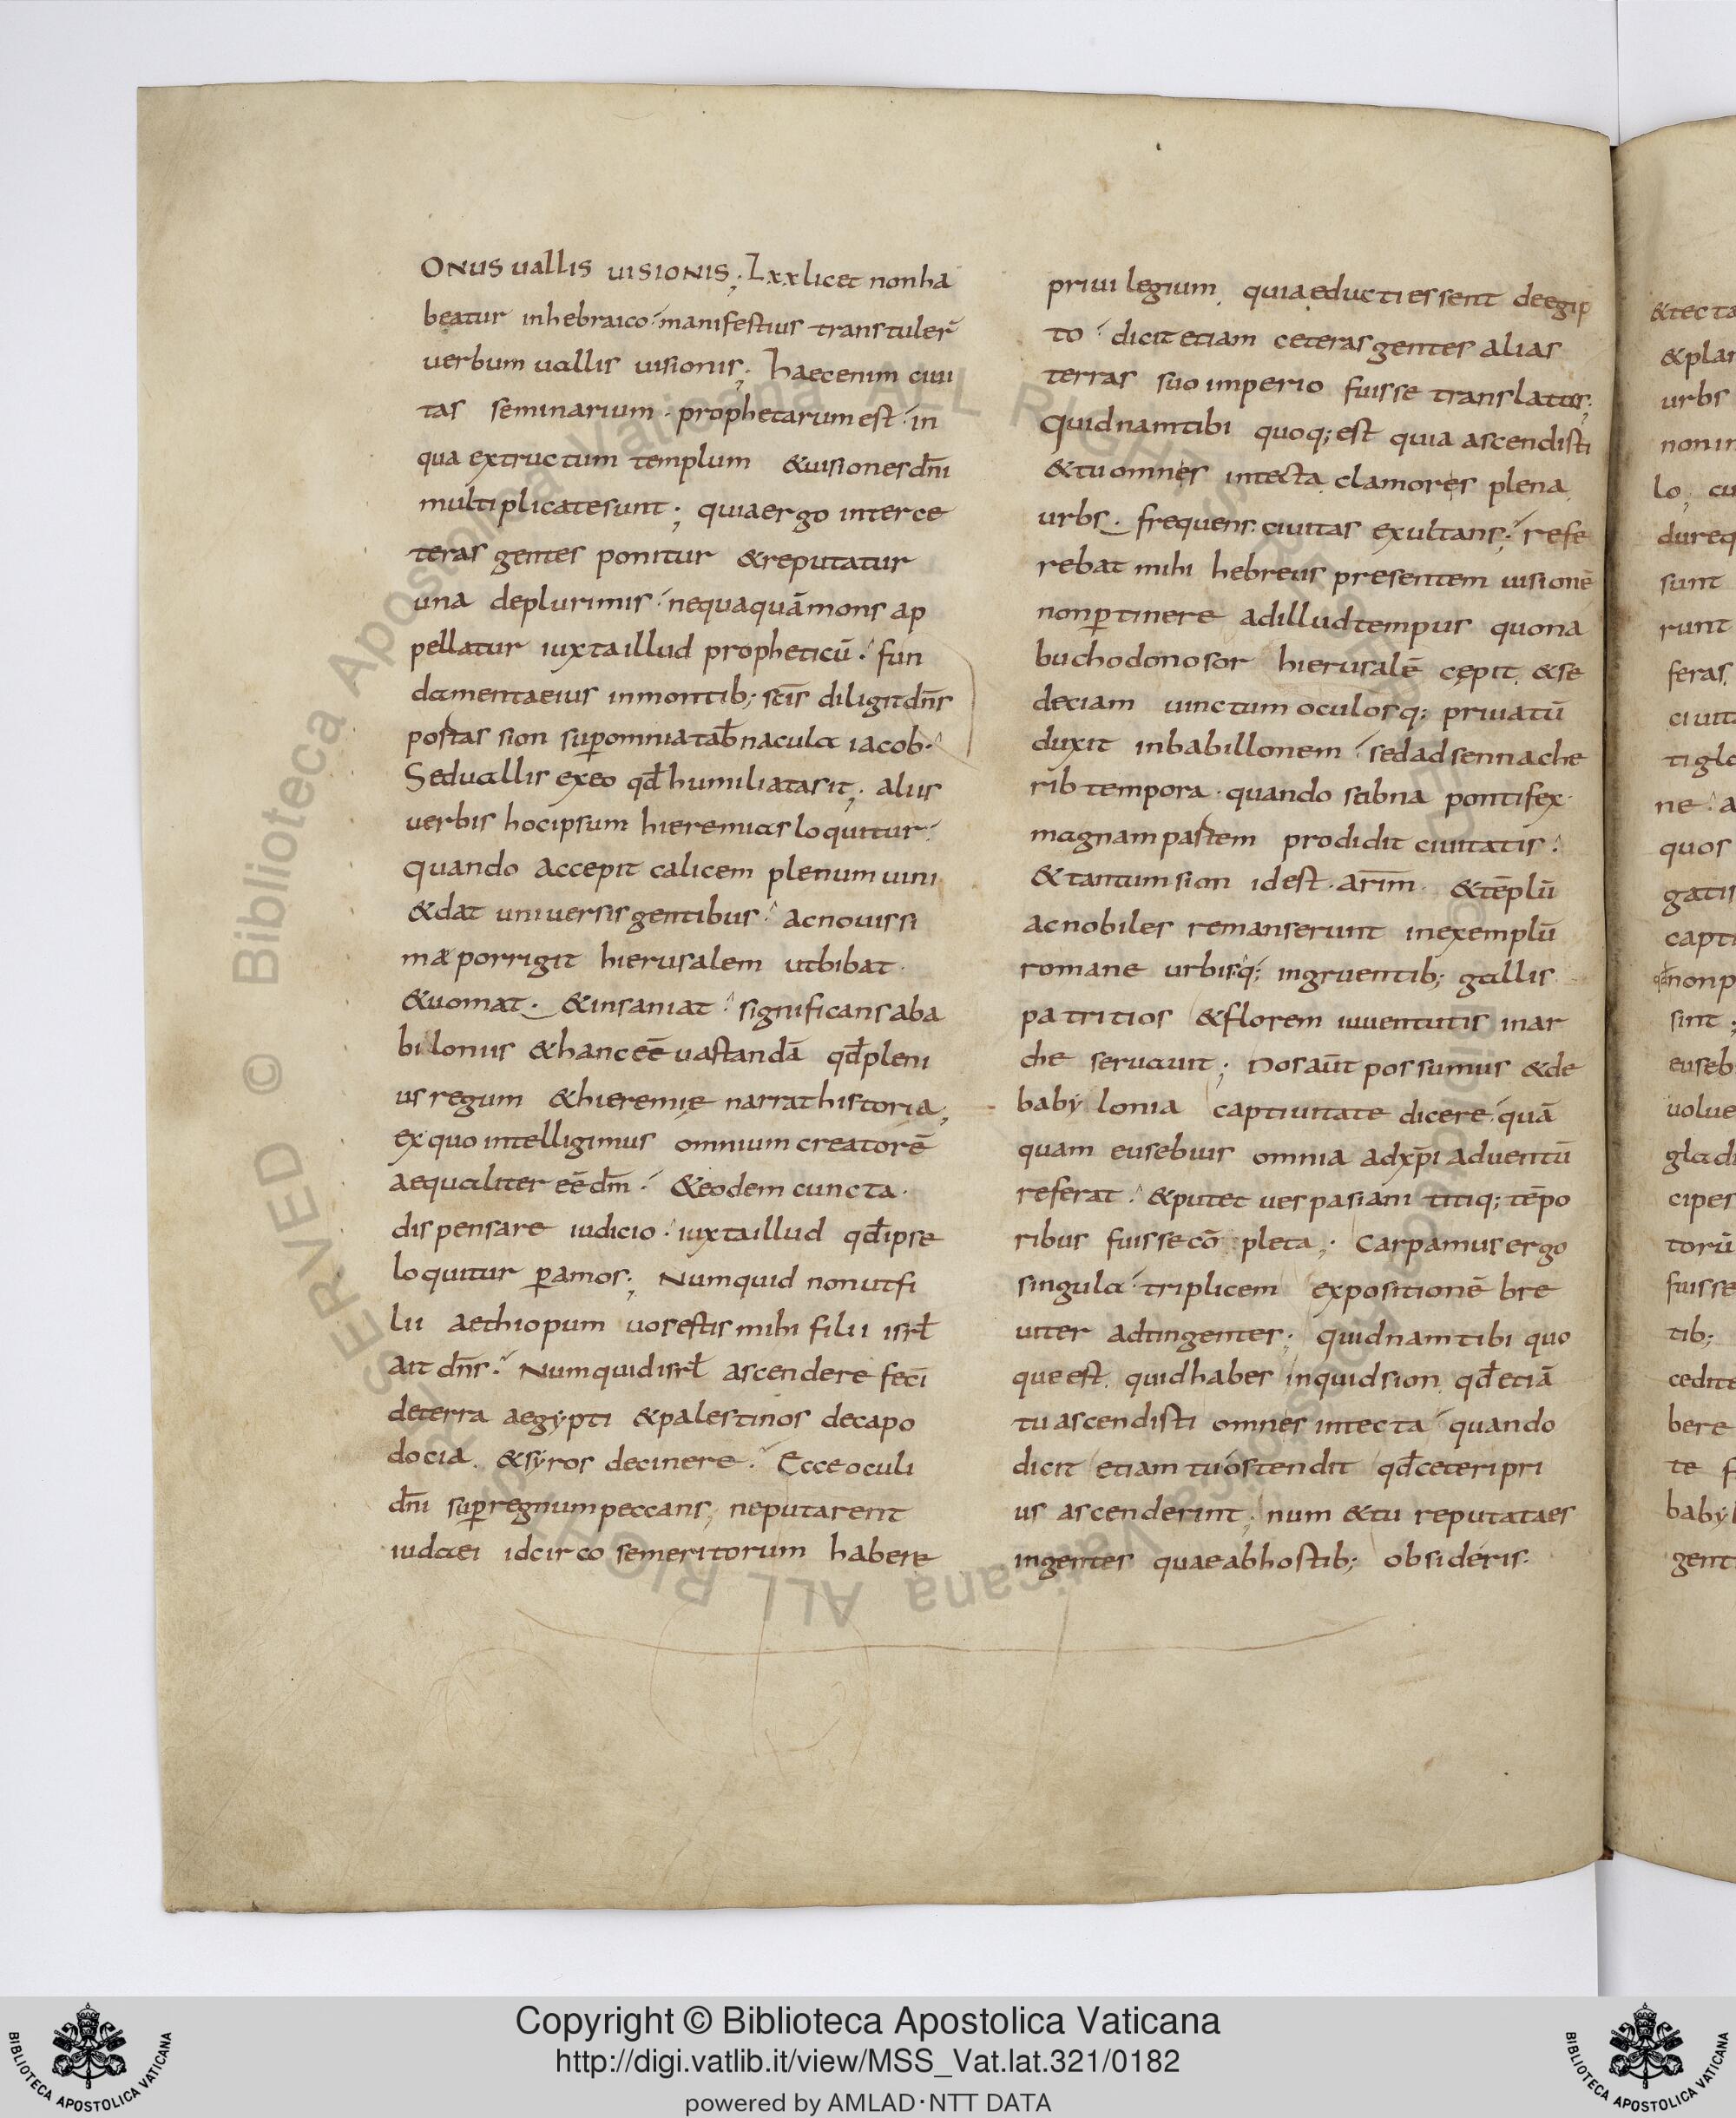 ONUS uallis UISIONIS; Lxx licet non ha
beatur inhebraico manifestius transtuler̄
uerbum uallis uisionis; haec enim ciui
tas seminarium · prophetarum est in
qua extructum templum & uisiones dn̄i
multiplicate sunt; quia ergo inter ce
teras gentes ponitur & reputatur
una deplurimis nequaquā mons ap
pellatur iuxta illud propheticū. fun
damenta eius in montib; sc̄is diligit dn̄s
portas sion sup̄ omnia tab̄nacula iacob.
Sed uallis ex eo qd̄ humiliata sit; aliis
uerbis hoc ipsum hieremias loquitur
quando accepit calicem plenum uini
& dat uniuersis gentibus. ac nouissi
mæ porrigit hierusalem ut bibat.
& uomat. & insaniat significans aba
bilonus & hanc eē uastandā qd̄ pleni
us regum & hieremie narrat historia;
ex quo intelligimus omnium creatorē
aequaliter eē dm̄. & eodem cuncta.
dispensare iudicio. iuxta illud qd̄ ipse
loquitur p̄ amos; Numquid non ut fi
lii aethiopum uos estis mihi filii isrl̄
ait dn̄s. Numquid isrl̄ ascendere feci
de terra aegypti & palestinos de capo
docia. & syros decinere. Ecce oculi
dn̄i sup̄ regnum peccans; ne putarent
iudaei idcirco se meritorum habere
priuilegium. quia educti essent de egip
to dicit etiam ceteras gentes alias
terras suo imperio fuisse translatas;
Quidnam tibi quoq; est quia ascendisti
& tu omnes in tecta. clamores plena.
urbs. frequens. ciuitas exultans; refe
rebat mihi hebreus presentem uisionē
non p̄tinere ad illud tempus quo na
buchodonosor hierusalē cepit. & se
deciam uinctum oculosq; priuatū
duxit in babillonem sed ad sennache
rib tempora. quando sobna pontifex
magnam partem prodidit ciuitatis.
& tantum sion id est. arīm. & tēplū
ac nobiles remanserunt in exemplū
romane urbis q; ingruentib; gallis
patritios & florem iuuentutis in ar
che seruauit; Nos aūt possumus & de
babylonia captiuitate dicere quā
quam eusebius omnia ad xp̄i aduentū
referat. & putet uespasiani titiq; tēpo
ribus fuisse cō pleta; Carpamus ergo
singula triplicem expositionē bre
uiter adtingentes; quidnam tibi quo
que est. quid habes inquid sion. qd̄ etiā
tu ascendisti omnes in tecta quando
dicit etiam tu ostendit qd̄ ceteri pri
us ascenderint; num & tu reputata es
in gentes quae ab hostib; obsideris.
& tecta
& plan
urbs
non in
lo
dureq
sunt
runt
feras
ciuita
ti gla
ne
quos
gatis
capti
non p
sint;
euseb
uolue
gladi
cipes
torū
fuisse
tib;
cedite
bere
te
babyl
gent
Copyright © Biblioteca Apostolica Vaticana
http://digi.vatlib.it/view/MSS_Vat.lat.321/0182
powered by AMLAD·NTT DATA
BIBLIOTECA APOSTOLICA VATICANA
BIBLIOTECA APOSTOLICA VATICANA